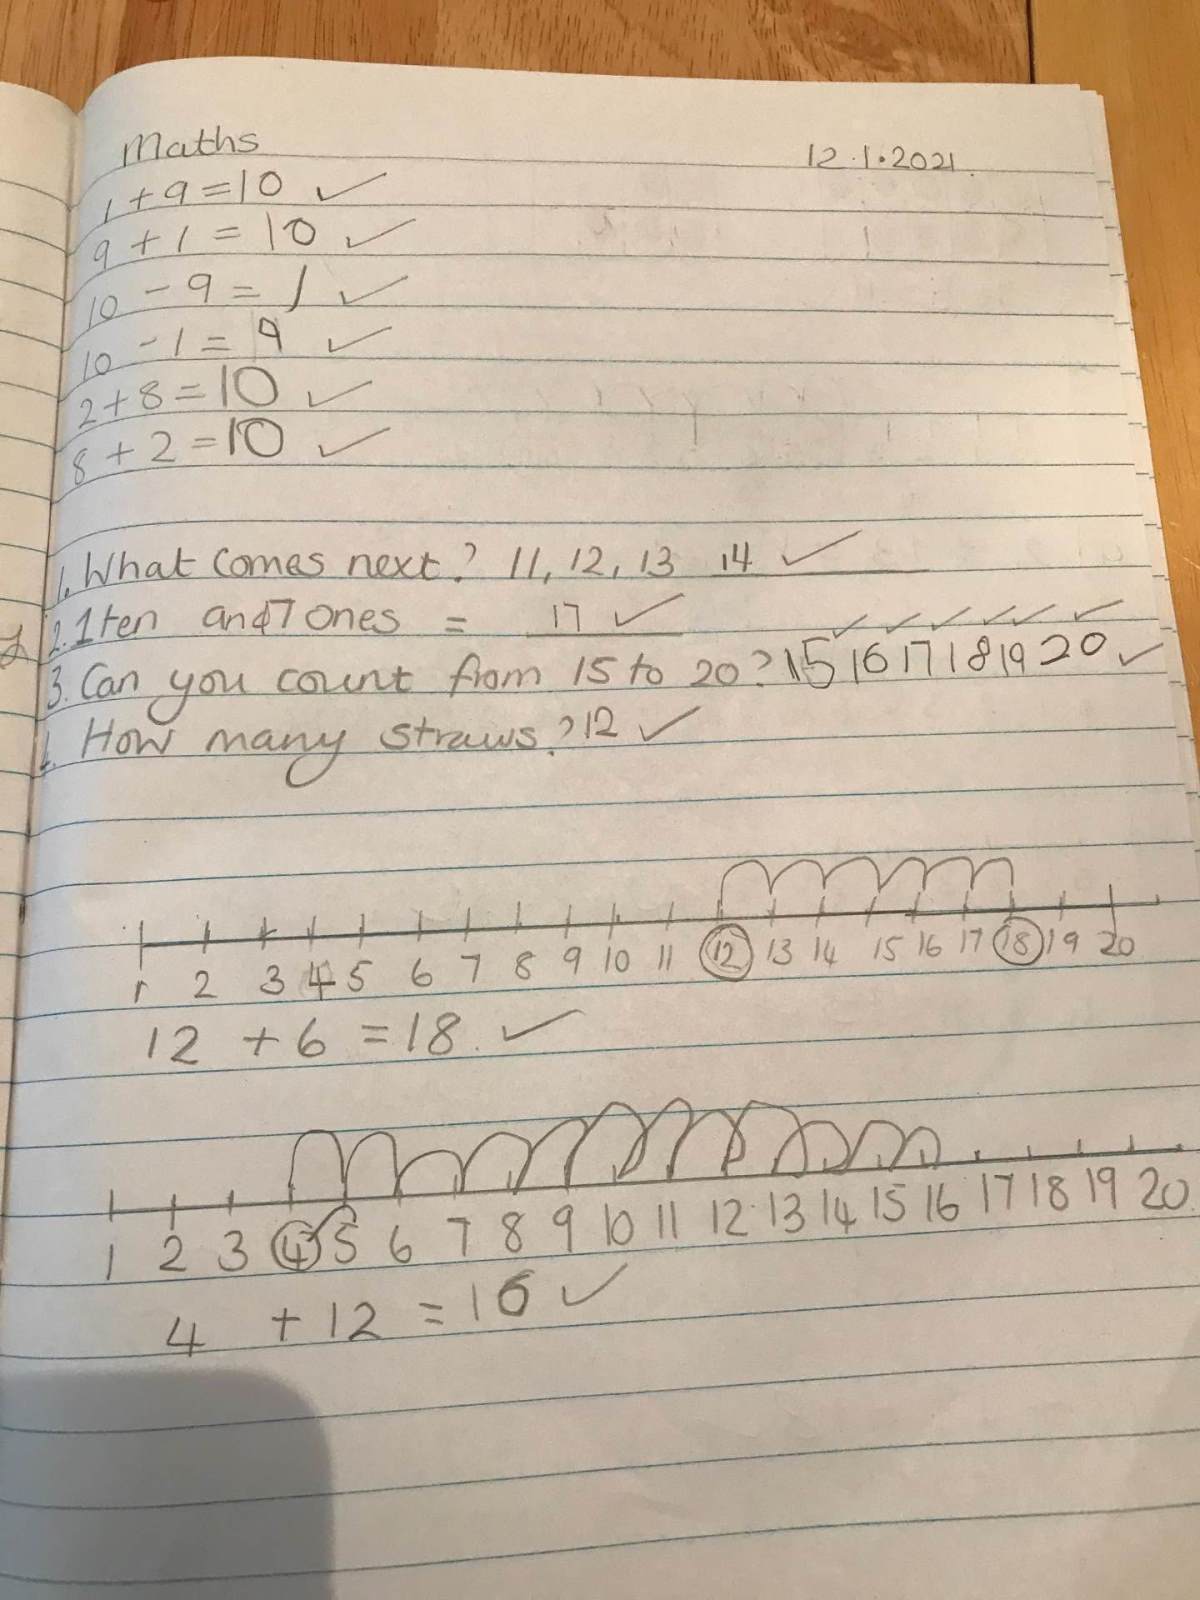 Maths 12.1.2021.
1 + 9 = 10 ✓
9 + 1 = 10 ✓
10 - 9 = 1 ✓
10 - 1 = 9 ✓
2 + 8 = 10 ✓
8 + 2 = 10 ✓
1. What comes next? 11, 12, 13 14 ✓
2. 1 ten and 7 ones = 17 ✓
3. Can you count from 15 to 20? 15 16 17 18 19 20 ✓
4. How many straws? 12 ✓
1 2 3 4 5 6 7 8 9 10 11 12 13 14 15 16 17 18 19 20
12 + 6 = 18. ✓
1 2 3 4 5 6 7 8 9 10 11 12 13 14 15 16 17 18 19 20
4 + 12 = 16 ✓